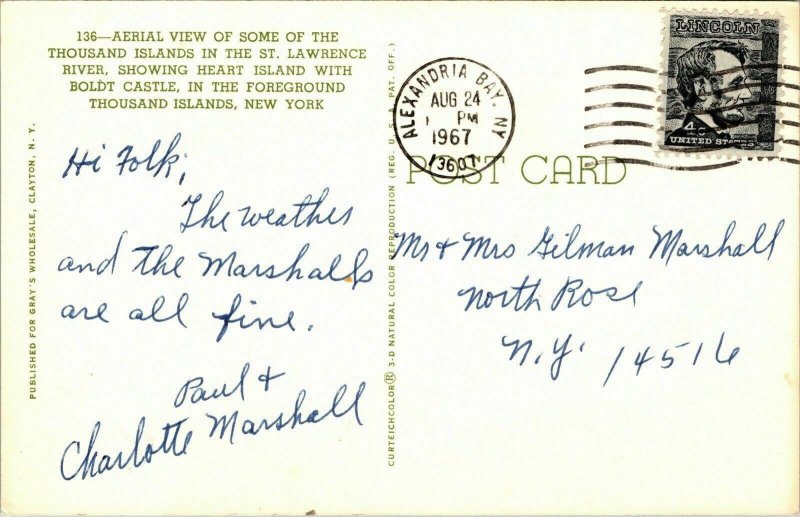 136—AERIAL VIEW OF SOME OF THE
THOUSAND ISLANDS IN THE ST. LAWRENCE
RIVER, SHOWING HEART ISLAND WITH
BOLDT CASTLE, IN THE FOREGROUND
THOUSAND ISLANDS, NEW YORK
Hi Folk,
The weather
and the Marshalls
are all fine.
Paul &
Charlotte Marshall
PUBLISHED FOR GRAY'S WHOLESALE, CLAYTON, N. Y.
CURTEICHCOLOR® 3-D NATURAL COLOR REPRODUCTION (REG. U. S. A. PAT. OFF.)
ALEXANDRIA BAY, NY
AUG 24
PM
1967
13607
LINCOLN
4c
UNITED STATES
POST CARD
Mr & Mrs Gilman Marshall
North Rose
N.Y. 14516